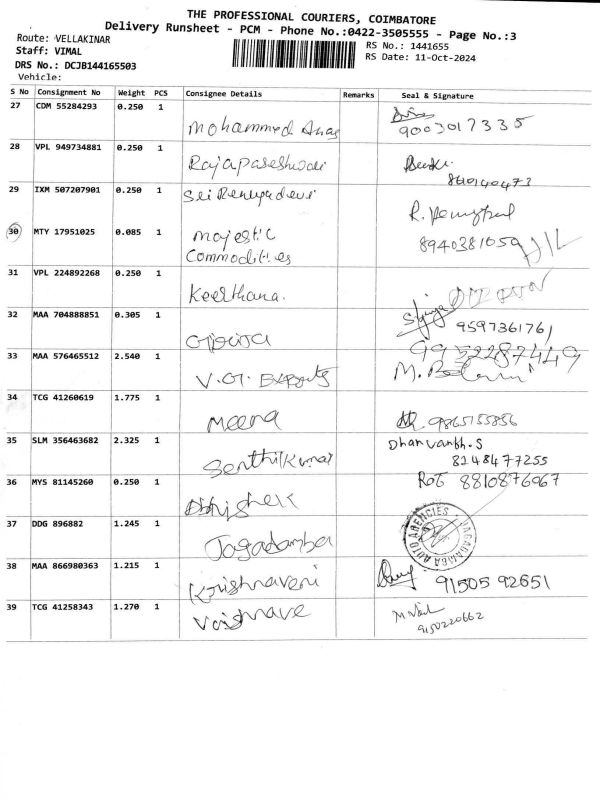 THE PROFESSIONAL COURIERS, COIMBATORE
Delivery Runsheet - PCM - Phone No.:0422-3505555 - Page No.:3
Route: VELLAKINAR
RS No.: 1441655
Staff: VIMAL
RS Date: 11-Oct-2024
DRS No.: DCJB144165503
Vehicle:
S No Consignment No Weight PCS Consignee Details Remarks Seal & Signature
27 CDM 55284293 0.250 1
Mohammed Anas 9003017335
28 VPL 949734881 0.250 1
Rajapareshwari
860140473
29 IXM 507207901 0.250 1
Sri Renugadevi
R.
30 MTY 17951025 0.085 1
Majestic 8940381059
Commodities
31 VPL 224892268 0.250 1
Keerthana.
32 MAA 704888851 0.305 1
9597361761
33 MAA 576465512 2.540 1
9952287449
V.G. Exports M.
34 TCG 41260619 1.775 1
Meena 9865155856
35 SLM 356463682 2.325 1
Dhanvanth.S
Senthilkumar 8148477255
36 MYS 81145260 0.250 1
8810876967
Abhishek
37 DDG 896882 1.245 1
Jagadamba JAGADAMBA AUTO AGENCIES
38 MAA 866980363 1.215 1
Krishnaveni 91505 92651
39 TCG 41258343 1.270 1
Vaishnave
9150220662